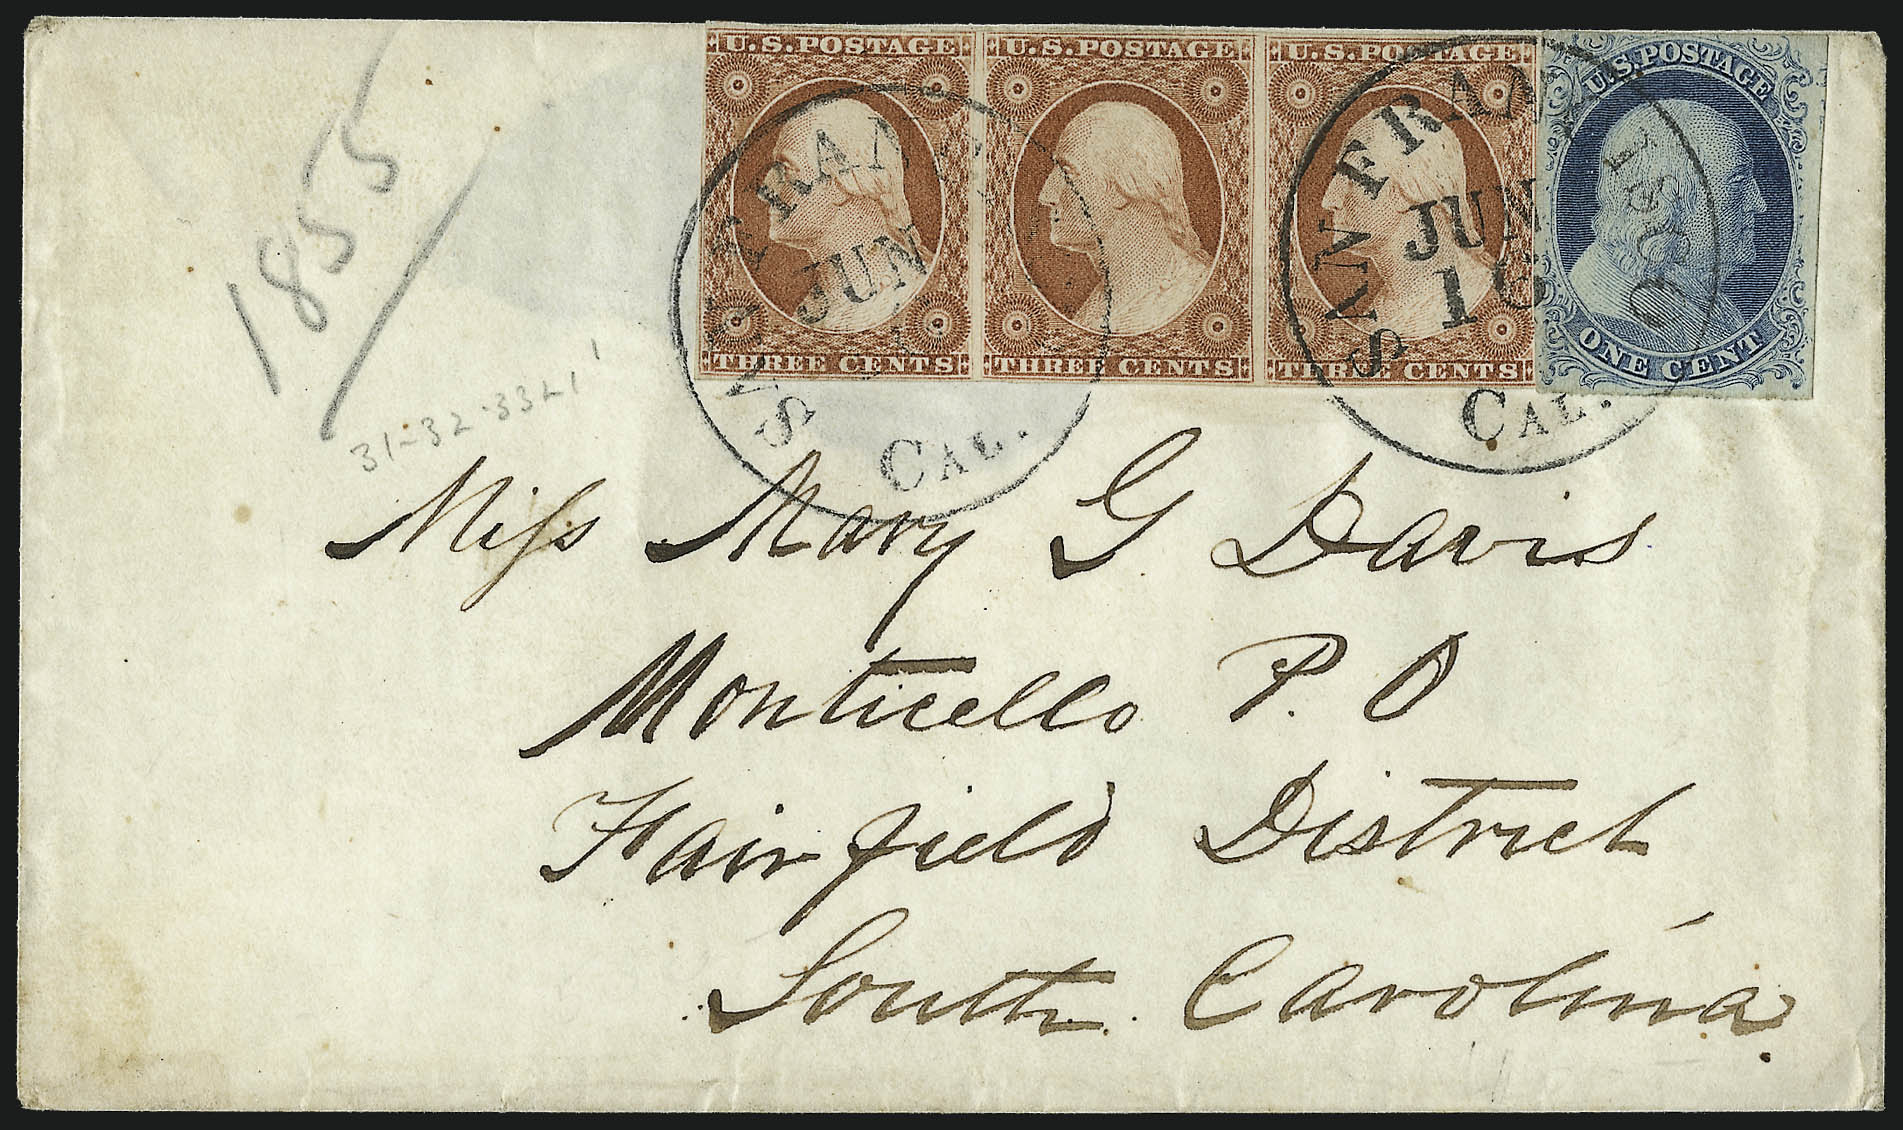 U.S.POSTAGE U.S.POSTAGE U.S.POSTAGE U.S.POSTAGE
THREE CENTS THREE CENTS THREE CENTS ONE CENT
SAN FRAN
JUN
CAL.
SAN FRANCISCO
JUN
16
CAL.
1855
31-32-33L1
Miss Mary G Davis
Monticello P. O
Fairfield District
South Carolina